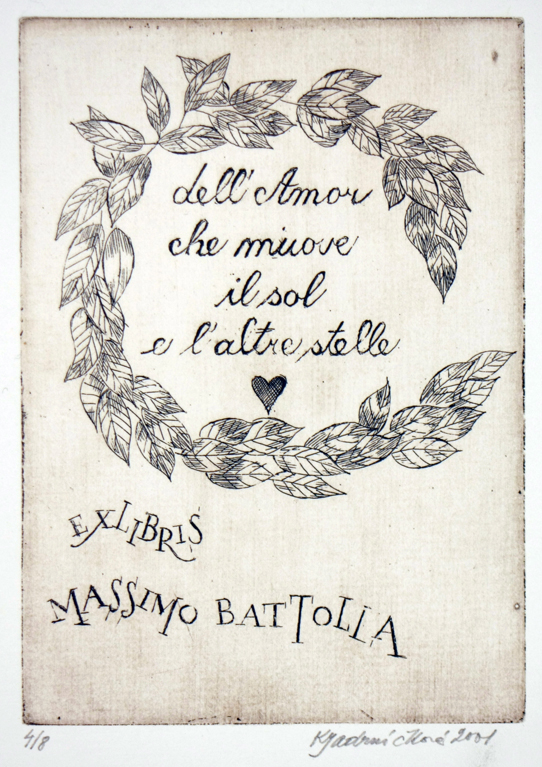 dell'Amor
che miuove
il sol
e l'altre stelle
EXLIBRIS
MASSIMO BATTOLLA
4/8
2001